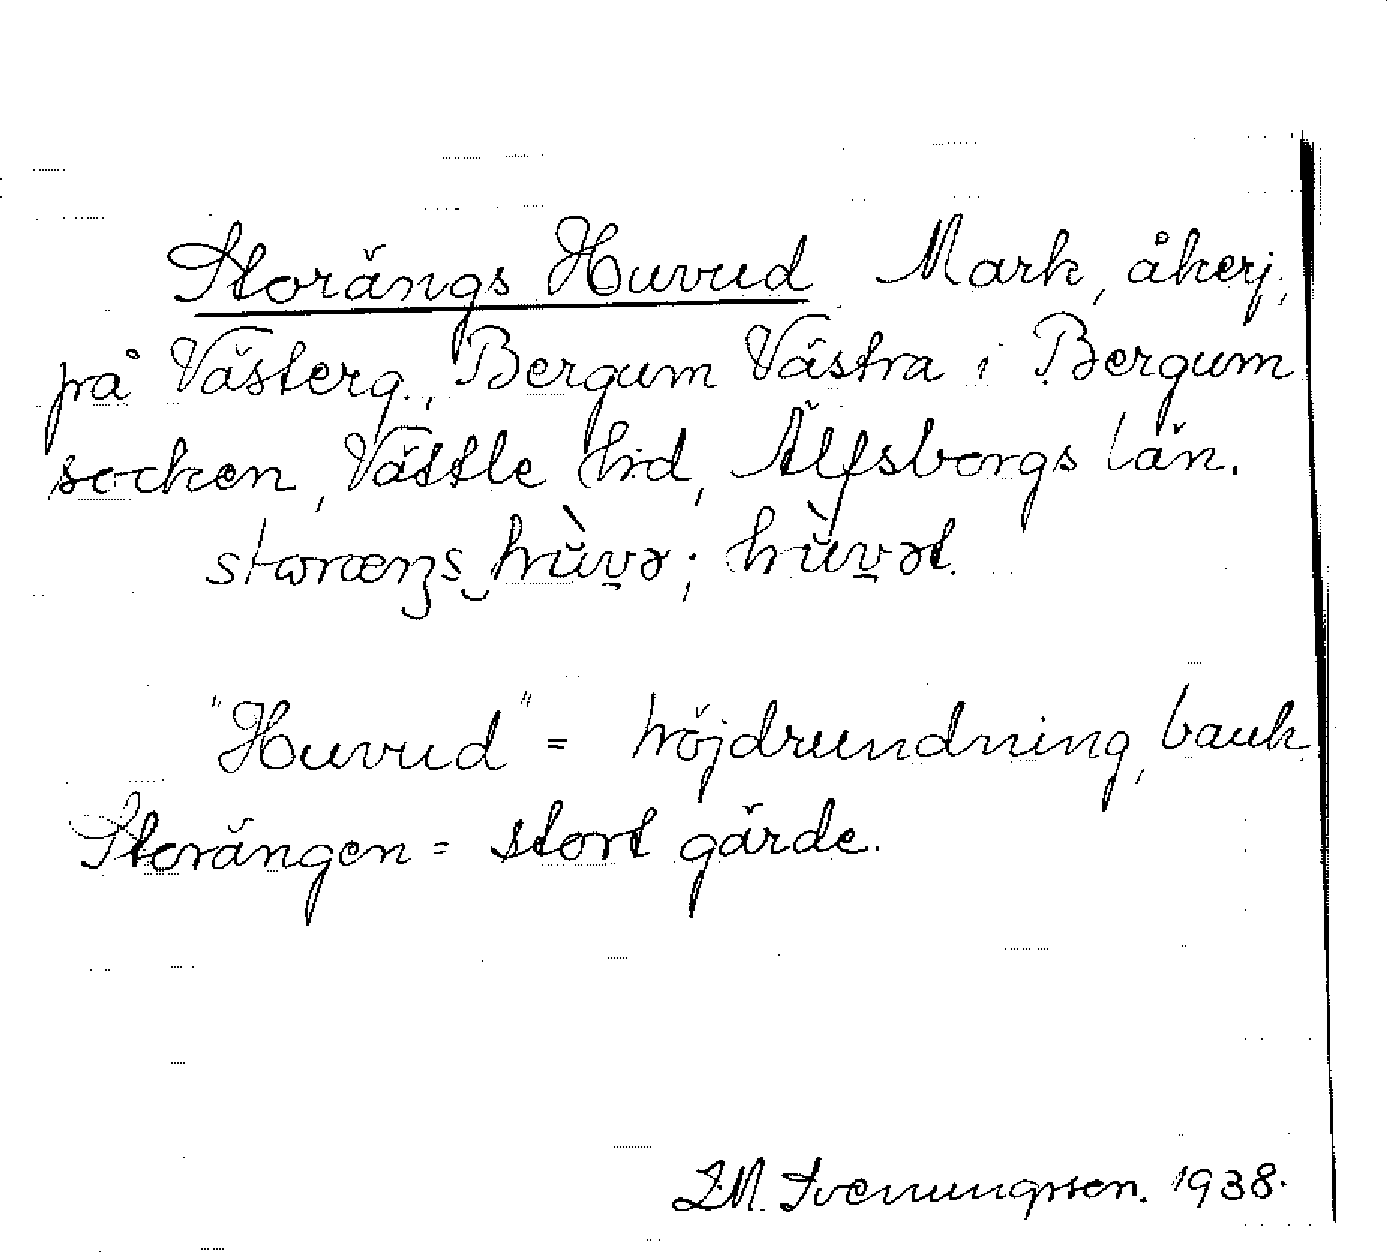 Storängs Huvud Mark, åkerj,
på Västerg., Bergum Västra i Bergum
socken, Vättle hrd, Älfsborgs län.
"Huvud" = höjdrundning, bank
Storängen = stort gärde.
I.M. Svenungsson. 1938.